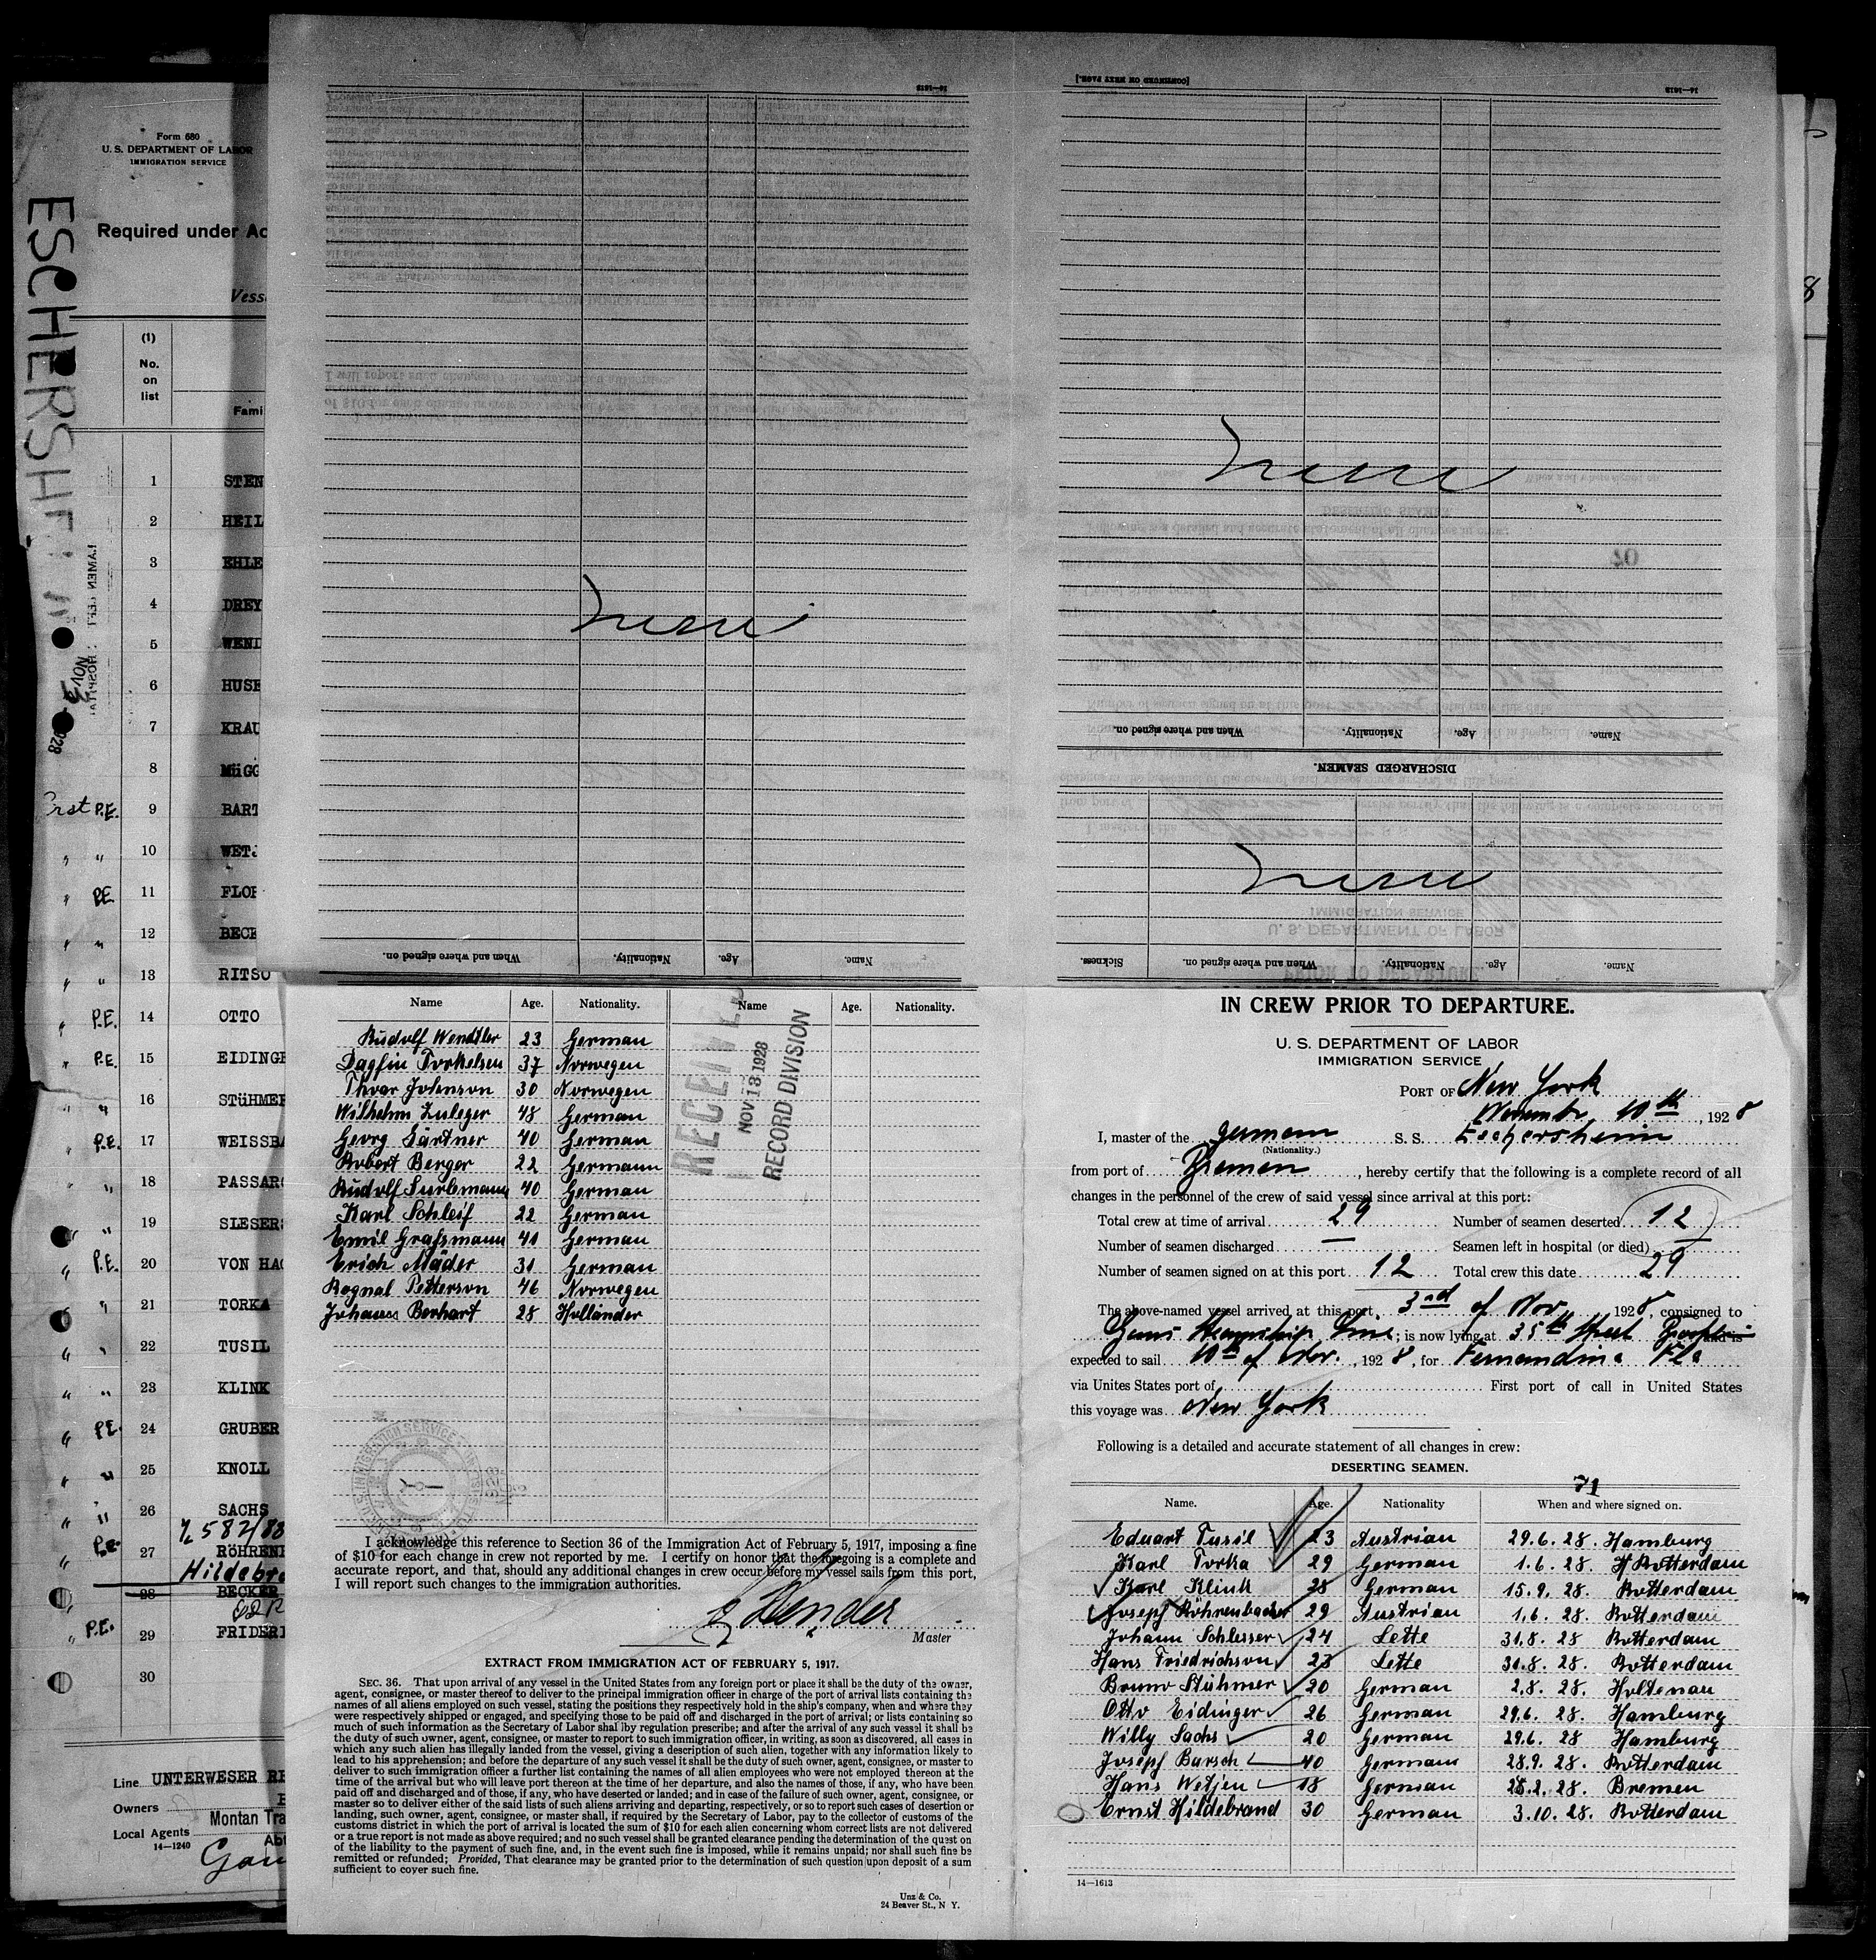 Form 680
U. S. DEPARTMENT OF LABOR
IMMIGRATION SERVICE
ESCHERSHEIM
Required under Ac
Vess
(1)
No.
on
list
Fami
1 STEN
2 HEIL
3 EHLE
4 DREY
5 WEND
6 HUSE
7 KRAU
8 MüGG
P.E. 9 BART
" " 10 WETJ
" P.E. 11 FLOR
" " 12 BECK
" " 13 RITSO
" P.E. 14 OTTO
" P.E. 15 EIDINGE
" " 16 STüHMER
" P.E. 17 WEISSBA
" 18 PASSARG
" 19 SLESERS
" P.E. 20 VON HAG
" " 21 TORKA
" " 22 TUSIL
" " 23 KLINK
" P.E. 24 GRUBER
" " 25 KNOLL
" " 26 SACHS
P.E. 27 RöHREN
Hildebra
28 BECKER
" P.E. 29 FRIDERI
30
NOV 3 1928
Line UNTERWESER RE
Owners
Local Agents Montan Tra
14—1240
14—1613
[CONTINUED ON NEXT PAGE.]
14—1613
When and where signed on. Nationality. Age. Name.
When and where signed on. Nationality. Age. Name.
DISCHARGED SEAMEN.
Sickness. When and where signed on. Nationality. Age. Name.
Name Age. Nationality. Name Age. Nationality.
Rudolf Wendtler 23 German
Dagfin Torkelsen 37 Norwegen
Thvar Johnson 30 Norwegen
Wilhelm Zuleger 48 German
Georg Gärtner 40 German
Robert Berger 22 Germann
Rudolf Surbmann 40 German
Karl Schleif 22 German
Emil Graßmann 41 German
Erich Mäder 31 German
Ragnal Petterson 46 Norwegen
Johanns Berhart 28 Holländer
RECEIVED
NOV 13 1928
RECORD DIVISION
I acknowledge this reference to Section 36 of the Immigration Act of February 5, 1917, imposing a fine
of $10 for each change in crew not reported by me. I certify on honor that the foregoing is a complete and
accurate report, and that, should any additional changes in crew occur before my vessel sails from this port,
I will report such changes to the immigration authorities.
Master
EXTRACT FROM IMMIGRATION ACT OF FEBRUARY 5, 1917.
SEC. 36. That upon arrival of any vessel in the United States from any foreign port or place it shall be the duty of the owner,
agent, consignee, or master thereof to deliver to the principal immigration officer in charge of the port of arrival lists containing the
names of all aliens employed on such vessel, stating the positions they respectively hold in the ship's company, when and where they
were respectively shipped or engaged, and specifying those to be paid off and discharged in the port of arrival; or lists containing so
much of such information as the Secretary of Labor shall by regulation prescribe; and after the arrival of any such vessel it shall be
the duty of such owner, agent, consignee, or master to report to such immigration officer, in writing, as soon as discovered, all cases in
which any such alien has illegally landed from the vessel, giving a description of such alien, together with any information likely to
lead to his apprehension; and before the departure of any such vessel it shall be the duty of such owner, agent, consignee, or master to
deliver to such immigration officer a further list containing the names of all alien employees who were not employed thereon at the
time of the arrival but who will leave port thereon at the time of her departure, and also the names of those, if any, who have been
paid off and discharged and of those, if any, who have deserted or landed; and in case of the failure of such owner, agent, consignee, or
master so to deliver either of the said lists of such aliens arriving and departing, respectively, or so to report such cases of desertion or
landing, such owner, agent, consignee, or master shall, if required by the Secretary of Labor, pay to the collector of customs of the
customs district in which the port of arrival is located the sum of $10 for each alien concerning whom correct lists are not delivered
or a true report is not made as above required; and no such vessel shall be granted clearance pending the determination of the quest on
of the liability to the payment of such fine, and, in the event such fine is imposed, while it remains unpaid; nor shall such fine be
remitted or refunded; Provided, That clearance may be granted prior to the determination of such question upon deposit of a sum
sufficient to cover such fine.
Unz & Co.
24 Beaver St., N Y.
IN CREW PRIOR TO DEPARTURE.
U. S. DEPARTMENT OF LABOR
IMMIGRATION SERVICE
PORT OF New York
November 10th, 1928
I, master of the german S. S. Eschersheim
(Nationality.)
from port of Bremen, hereby certify that the following is a complete record of all
changes in the personnel of the crew of said vessel since arrival at this port:
Total crew at time of arrival 29 Number of seamen deserted 12
Number of seamen discharged — Seamen left in hospital (or died) —
Number of seamen signed on at this port 12 Total crew this date 29
The above-named vessel arrived at this port 3rd of Nov. 1928, consigned to
Steamship Line; is now lying at 35th Street and is
expected to sail 10th of Nov., 1928, for Fernandina Fla
via Unites States port of First port of call in United States
this voyage was New York
Following is a detailed and accurate statement of all changes in crew:
DESERTING SEAMEN.
71
Name. Age. Nationality When and where signed on.
Eduart Tusil 23 Austrian 29.6.28. Hamburg
Karl Torka 29 German 1.6.28. Rotterdam
Karl Klink 28 German 15.9.28. Rotterdam
Joseph Röhrenbacher 29 Austrian 1.6.28 Rotterdam
Johann Schlesser 24 Lette 31.8.28 Rotterdam
Hans Friedrichson 23 Lette 31.8.28. Rotterdam
Bruno Stühmer 20 German 2.8.28. Holtenau
Otto Eidinger 26 German 29.6.28. Hamburg
Willy Sachs 20 German 29.6.28 Hamburg
Joseph Barsch 40 Germann 28.9.28. Rotterdam
Hans Wetjen 18 German 28.2.28. Bremen
Ernst Hildebrand 30 German 3.10.28. Rotterdam
14—1613